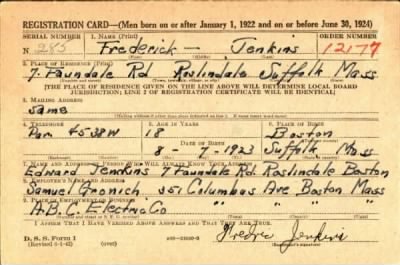 REGISTRATION CARD—(Men born on or after January 1, 1922 and on or before June 30, 1924)
SERIAL NUMBER 1. NAME (Print) ORDER NUMBER
N 285 Frederick — Jenkins 12177
2. PLACE OF RESIDENCE (Print)
7. Faundale Rd Roslindale Suffolk Mass
(THE PLACE OF RESIDENCE GIVEN ON THE LINE ABOVE WILL DETERMINE LOCAL BOARD
JURISDICTION; LINE 2 OF REGISTRATION CERTIFICATE WILL BE IDENTICAL)
3. MAILING ADDRESS
same
4. TELEPHONE 5. AGE IN YEARS 6. PLACE OF BIRTH
Par 4538W 18 Boston
DATE OF BIRTH
8 - 7 - 1923 Suffolk Mass
7. NAME AND ADDRESS OF PERSON WHO WILL ALWAYS KNOW YOUR ADDRESS
Edward Jenkins 7 Faundale Rd. Roslindale Boston
8. EMPLOYER'S NAME AND ADDRESS
Samuel Gronich 351 Columbus Ave Boston Mass
9. PLACE OF EMPLOYMENT OR BUSINESS
A.B.C. Electric Co " " " "
I AFFIRM THAT I HAVE VERIFIED ABOVE ANSWERS AND THAT THEY ARE TRUE.
D. S. S. Form 1 (over)
Fredric Jenkins